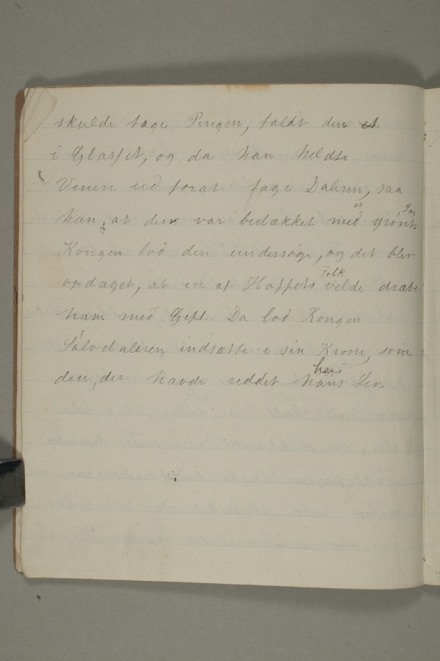 skulde tage Pengen, faldt den et
i Glasset, og da han heldte
Vinen ud forat fage Daleren, saa
han, at den var bedækket med grønt
Kongen lod den undersøge, og det blev
opdaget, at en af Hoffets Folk vilde dræbe
ham med Gift. Da lod Kongen
Sølvdaleren indsætte i sin Krone, som
den, der havde reddet hans